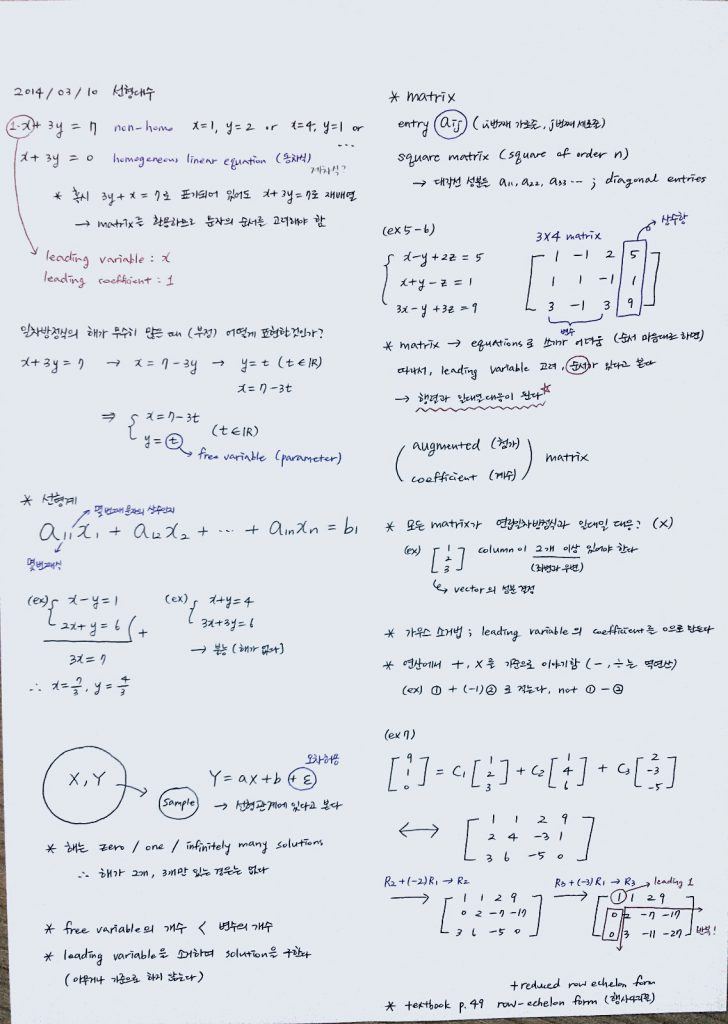 2014/03/10 선형대수
1·x+3y=7 non-homo x=1, y=2 or x=4, y=1 or ...
x+3y=0 homogeneous linear equation (동차식)
제차식?
* 혹시 3y+x=7로 표기되어 있어도 x+3y=7로 재배열
→ matrix를 활용하므로 문자의 순서를 고려해야 함
leading variable : x
leading coefficient : 1
일차방정식의 해가 무수히 많은 때 (부정) 어떻게 표현할것인가?
x+3y=7 → x=7-3y → y=t (t∈ℝ)
x=7-3t
⇒ { x=7-3t
y=t (t∈ℝ)
free variable (parameter)
* 선형계
몇번째 문자의 상수인지
a₁₁x₁ + a₁₂x₂ + ··· + a₁ₙxₙ = b₁
몇번째식
(ex) { x-y=1
2x+y=6 ( +
3x=7
∴ x=7/3, y=4/3
(ex) { x+y=4
3x+3y=6
→ 불능 (해가 없다)
오차허용
X, Y → sample Y=ax+b+ε
→ 선형관계에 있다고 본다
* 해는 zero / one / infinitely many solutions
∴ 해가 2개, 3개만 있는 경우는 없다
* free variable의 개수 < 변수의 개수
* leading variable을 소거하며 solution을 구한다
(아무거나 기준으로 하지 않는다)
* matrix
entry aᵢⱼ (i번째 가로줄, j번째 세로줄)
square matrix (square of order n)
→ 대각선 성분은 a₁₁, a₂₂, a₃₃ ··· ; diagonal entries
(ex 5-6) 3X4 matrix 상수항
{ x-y+2z=5 [ 1 -1 2 5
x+y-z=1 1 1 -1 1
3x-y+3z=9 3 -1 3 9 ]
변수
* matrix → equations로 쓰기가 어려움 (순서 마음대로 하면)
따라서, leading variable 고려, 순서가 있다고 본다
→ 행렬과 일대일대응이 된다☆
( augmented (첨가)
coefficient (계수) ) matrix
* 모든 matrix가 연립일차방정식과 일대일 대응? (X)
(ex) [ 1 2 3 ] column이 2개 이상 있어야 한다
(좌변과 우변)
vector의 성분 결정
* 가우스 소거법 ; leading variable의 coefficient를 0으로 만든다
* 연산에서 +, X를 기준으로 이야기함 (-, ÷는 역연산)
(ex) ① + (-1)② 로 적는다, not ① - ②
(ex 7)
[ 9 1 0 ] = C₁ [ 1 2 3 ] + C₂ [ 1 4 6 ] + C₃ [ 2 -3 -5 ]
↔ [ 1 1 2 9
2 4 -3 1
3 6 -5 0 ]
R₂+(-2)R₁ → R₂
→ [ 1 1 2 9
0 2 -7 -17
3 6 -5 0 ]
R₃+(-3)R₁ → R₃ leading 1
→ [ 1 1 2 9
0 2 -7 -17
0 3 -11 -27 ] 반복!
+reduced row echelon form
* textbook p.49 row-echelon form (행사다리꼴)